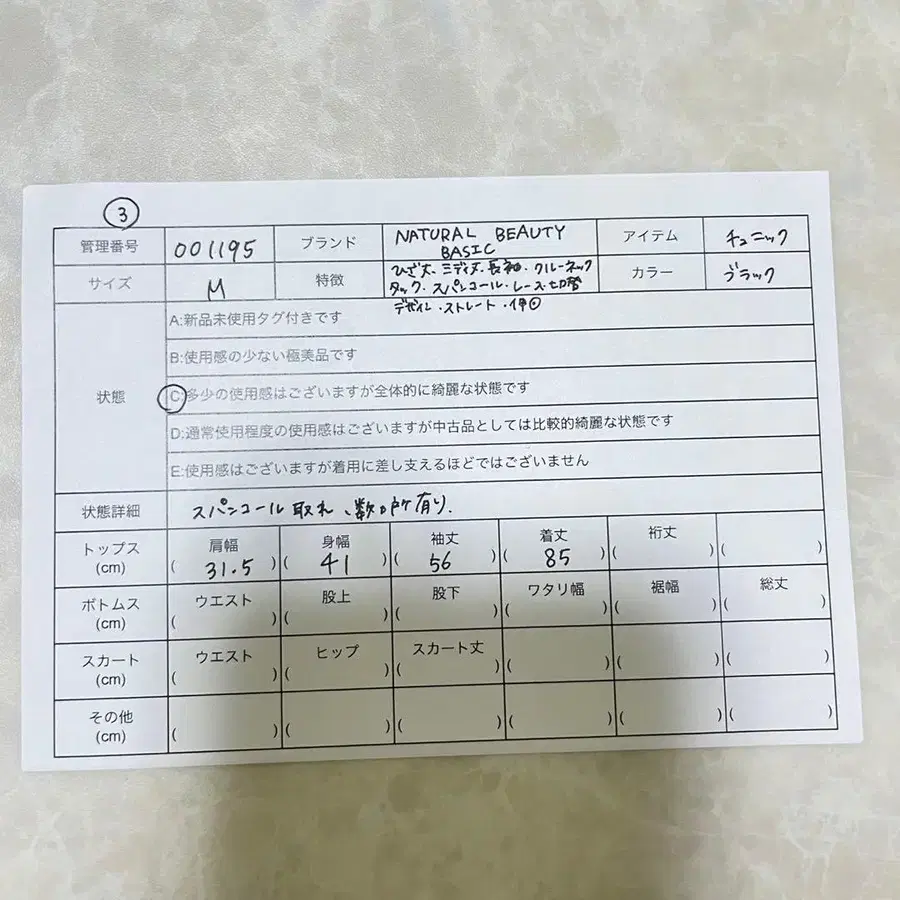 ③
管理番号 001195 ブランド NATURAL BEAUTY BASIC アイテム チュニック
サイズ M 特徴 ひざ丈・ミディ丈・長袖・クルーネック カラー ブラック
タック・スパンコール・レース・切替
デザイン・ストレート・
状態
A:新品未使用タグ付きです
B:使用感の少ない極美品です
C:多少の使用感はございますが全体的に綺麗な状態です
D:通常使用程度の使用感はございますが中古品としては比較的綺麗な状態です
E:使用感はございますが着用に差し支えるほどではございません
状態詳細 スパンコール取れ、数ヶ所有り.
トップス 肩幅 身幅 袖丈 着丈 裄丈
(cm) ( 31.5 ) ( 41 ) ( 56 ) ( 85 ) ( ) ( )
ボトムス ウエスト 股上 股下 ワタリ幅 裾幅 総丈
(cm) ( ) ( ) ( ) ( ) ( ) ( )
スカート ウエスト ヒップ スカート丈
(cm) ( ) ( ) ( ) ( ) ( ) ( )
その他
(cm) ( ) ( ) ( ) ( ) ( ) ( )